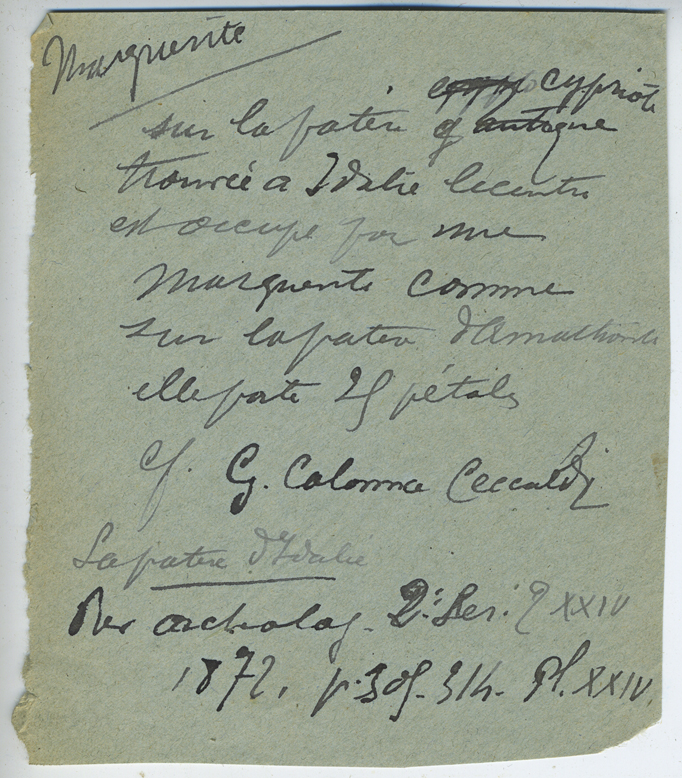 Marguerite
cypriote
sur la patère
trouvée a Idalie le centre
est occupé par une
Marguerite comme
sur la patère d'Amathonte
elle porte pétales
cf. G. Colonna Ceccaldi
La patère d'Idalie
Rev archeolog. 2e Ser. XXIV
1872. p. 309-314. Pl. XXIV.